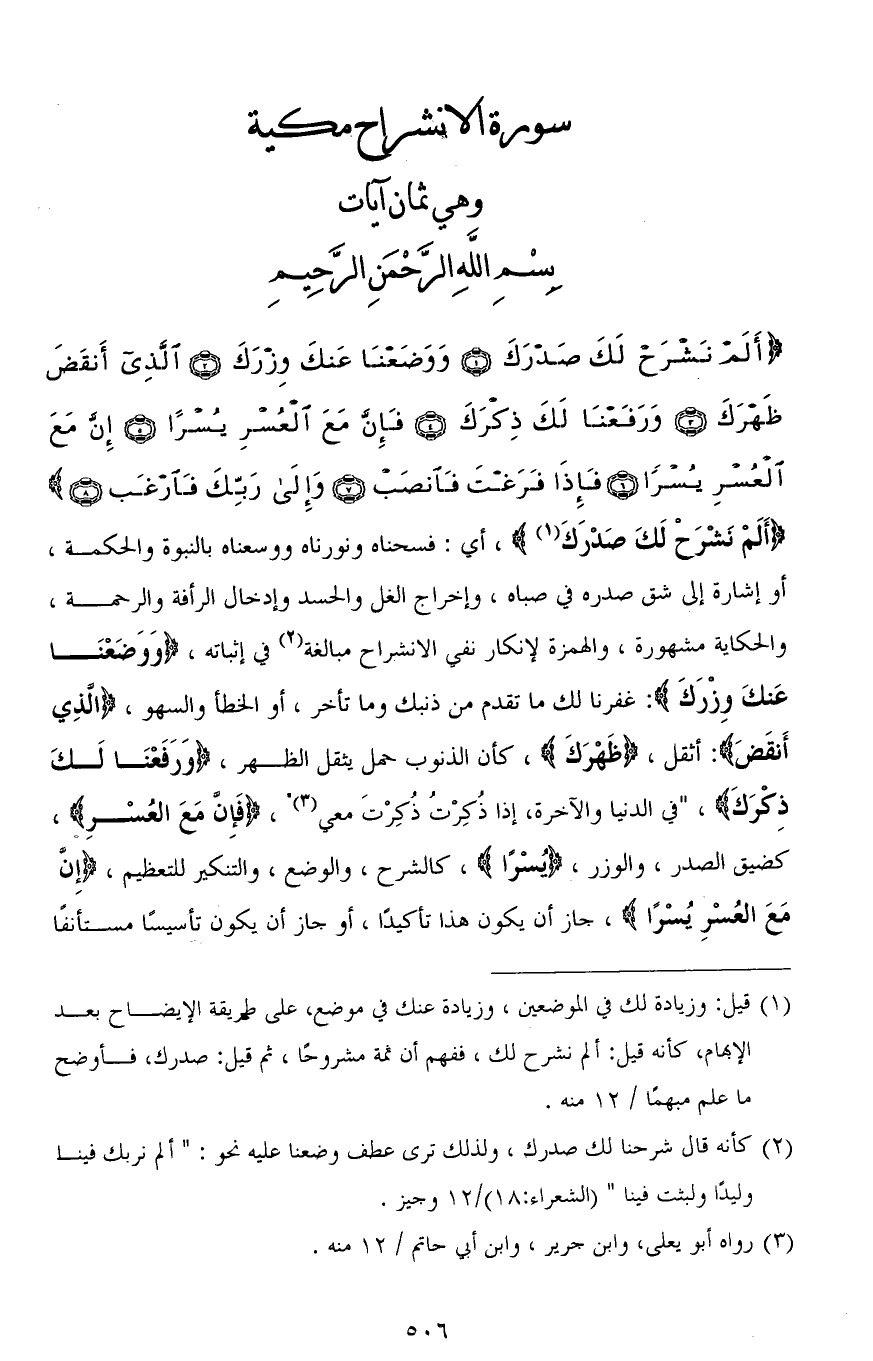 سورة الانشراح مكية
وهي ثمان آيات
بِسْمِ اللَّهِ الرَّحْمَنِ الرَّحِيمِ
﴿أَلَمْ نَشْرَحْ لَكَ صَدْرَكَ ۝١ وَوَضَعْنَا عَنكَ وِزْرَكَ ۝٢ ٱلَّذِىٓ أَنقَضَ
ظَهْرَكَ ۝٣ وَرَفَعْنَا لَكَ ذِكْرَكَ ۝٤ فَإِنَّ مَعَ ٱلْعُسْرِ يُسْرًا ۝٥ إِنَّ مَعَ
ٱلْعُسْرِ يُسْرًا ۝٦ فَإِذَا فَرَغْتَ فَٱنصَبْ ۝٧ وَإِلَىٰ رَبِّكَ فَٱرْغَب ۝٨﴾
﴿أَلَمْ نَشْرَحْ لَكَ صَدْرَكَ(١)﴾ ، أي : فسحناه ونورناه ووسعناه بالنبوة والحكمة ،
أو إشارة إلى شق صدره في صباه ، وإخراج الغل والحسد وإدخال الرأفة والرحمة ،
والحكاية مشهورة ، والهمزة لإنكار نفي الانشراح مبالغة(٢) في إثباته ، ﴿وَوَضَعْنَا
عَنكَ وِزْرَكَ﴾: غفرنا لك ما تقدم من ذنبك وما تأخر ، أو الخطأ والسهو ، ﴿الَّذِي
أَنقَضَ﴾: أثقل ، ﴿ظَهْرَكَ﴾ ، كأن الذنوب حمل يثقل الظهر ، ﴿وَرَفَعْنَا لَكَ
ذِكْرَكَ﴾ ، "في الدنيا والآخرة، إذا ذُكِرْتُ ذُكِرْتَ معي(٣)" ، ﴿فَإِنَّ مَعَ العُسْرِ﴾ ،
كضيق الصدر ، والوزر ، ﴿يُسْرًا﴾ ، كالشرح ، والوضع ، والتنكير للتعظيم ، ﴿إِنَّ
مَعَ العُسْرِ يُسْرًا﴾ ، جاز أن يكون هذا تأكيدًا ، أو جاز أن يكون تأسيسًا مستأنفًا
(١) قيل: وزيادة لك في الموضعين ، وزيادة عنك في موضع، على طريقة الإيضاح بعد
الإبهام، كأنه قيل: ألم نشرح لك ، ففهم أن ثمة مشروحًا ، ثم قيل: صدرك، فأوضح
ما علم مبهمًا / ١٢ منه .
(٢) كأنه قال شرحنا لك صدرك ، ولذلك ترى عطف وضعنا عليه نحو : " ألم نربك فينا
وليدًا ولبثت فينا " (الشعراء:١٨)/١٢ وجيز .
(٣) رواه أبو يعلى، وابن جرير ، وابن أبي حاتم / ١٢ منه .
٥٠٦